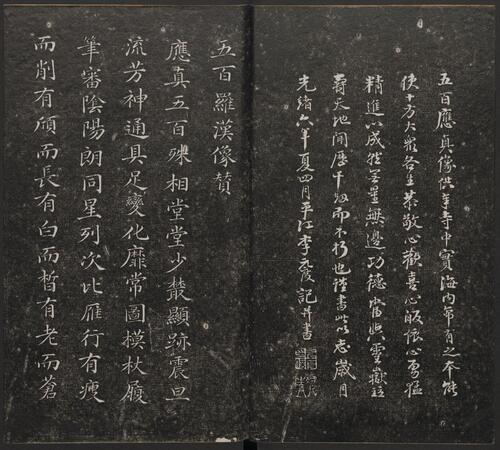 五百應真像供奉寺中實海内希有之本能
使十方大衆各生恭敬心歡喜心皈依心勇猛
精進以成就无量無邊功德當與靈嶽並
壽天地間歷千劫而不朽也謹書此以志歲月
光緒六年夏四月平江李記并書
五百羅漢像贊
應真五百殊相堂堂少叢顯跡震旦
流芳神通具足變化靡常圖模杖履
筆審陰陽朗同星列次比雁行有瘦
而削有頎而長有白而皙有老而蒼